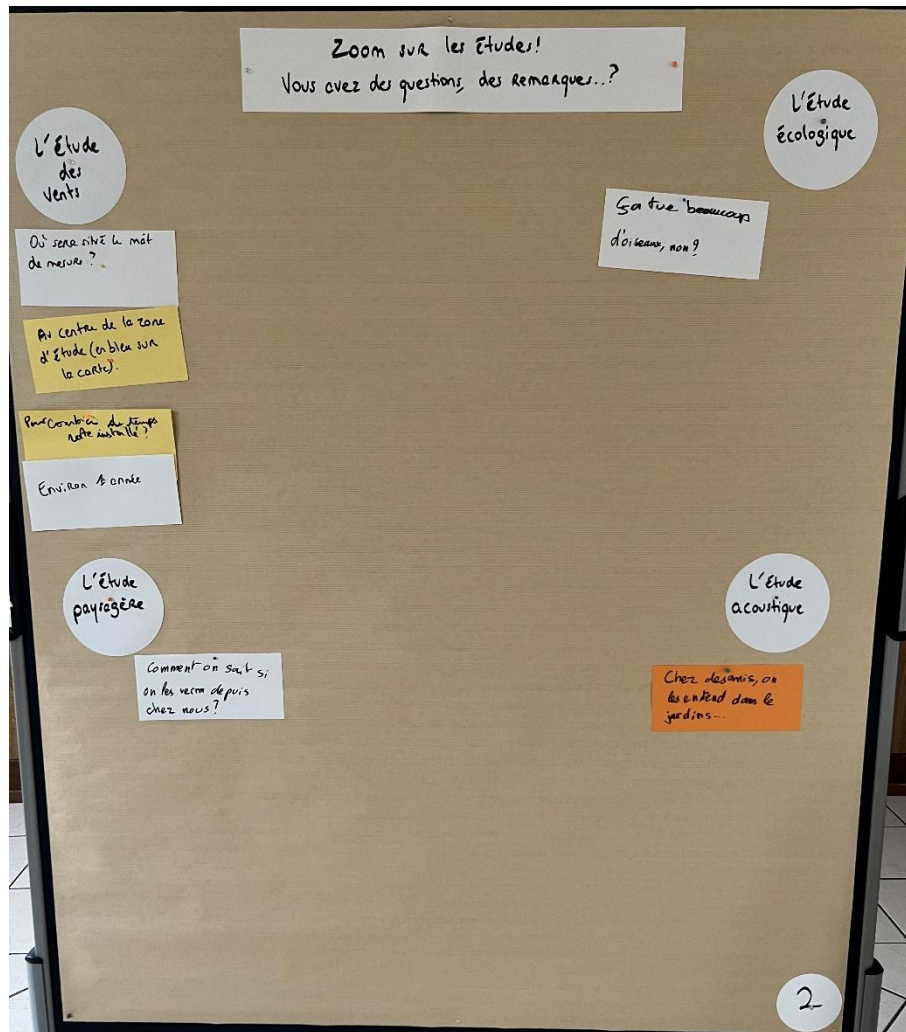 Zoom sur les Études!
Vous avez des questions, des Remarques..?
L'Étude
des
vents
Où sera situé le mât
de mesure ?
Au centre de la zone
d'Étude (en bleu sur
la carte).
Pour combien de temps
reste installé ?
Environ 1 année
L'Étude
écologique
Ça tue beaucoup
d'oiseaux, non ?
L'Étude
paysagère
Comment on sait si
on les verra depuis
chez nous ?
L'Étude
acoustique
Chez des amis, on
les entend dans le
jardins...
2